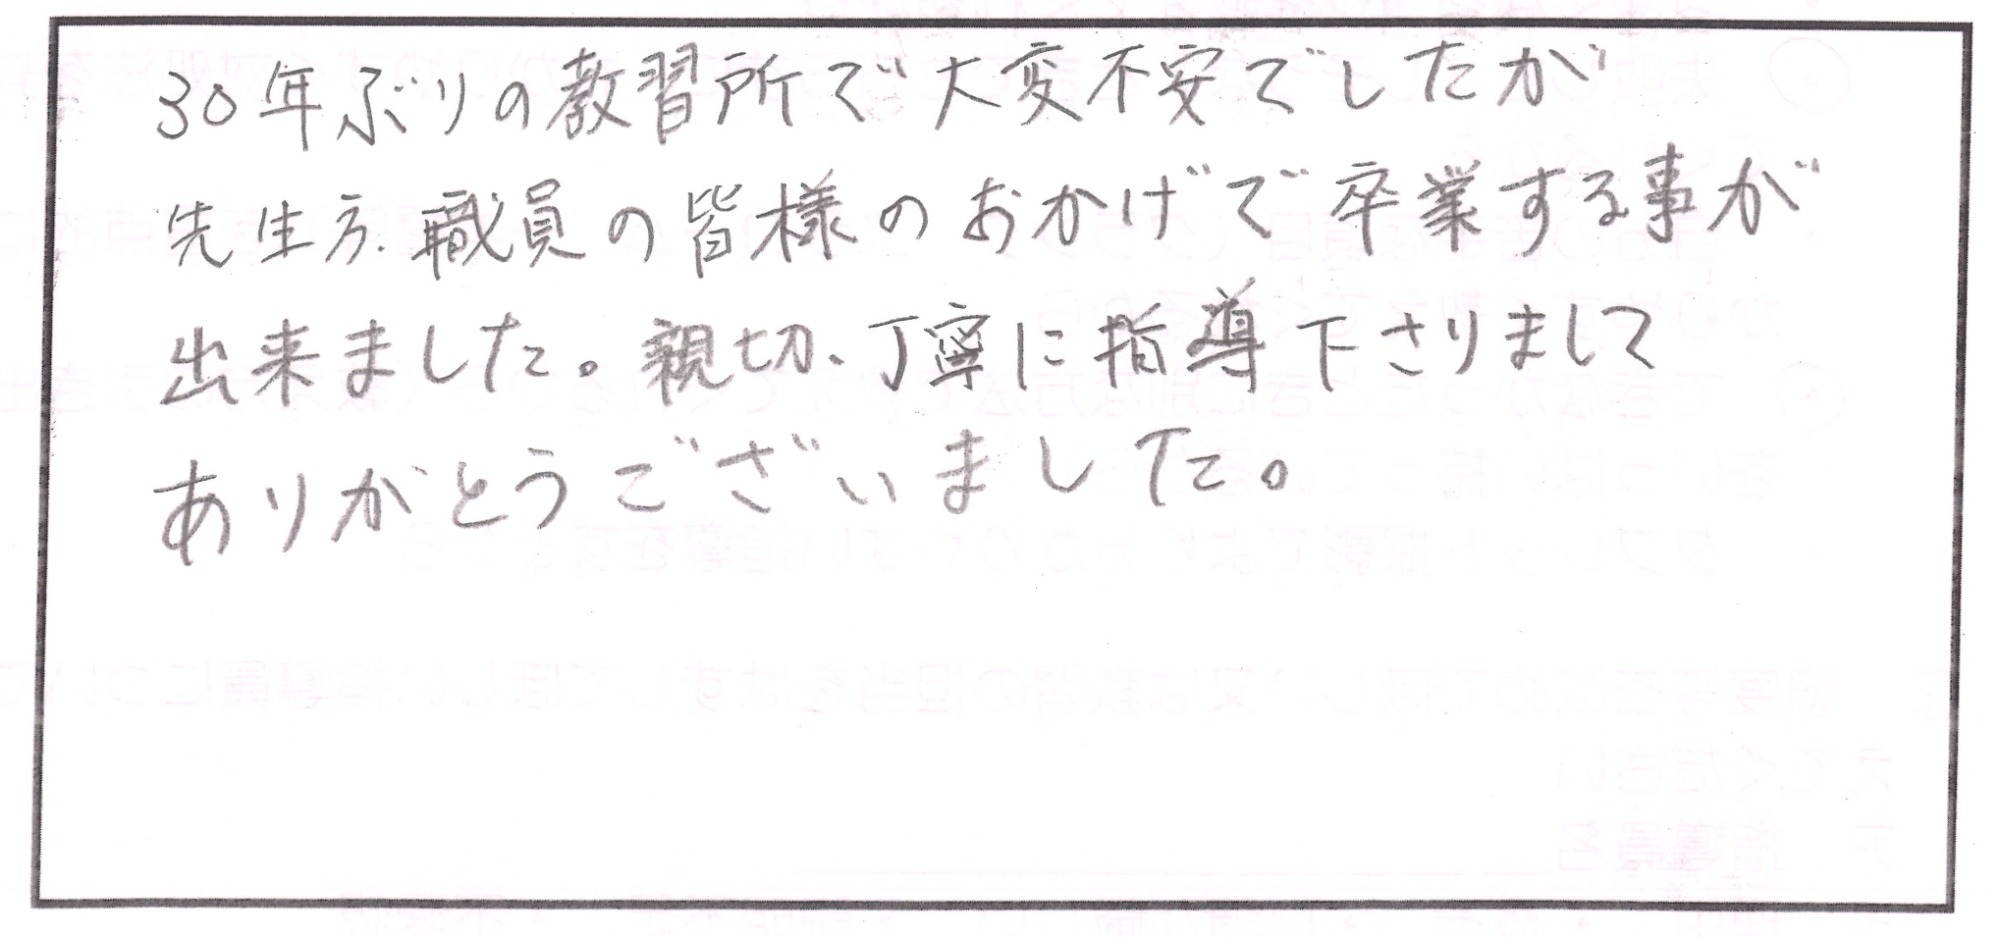 30年ぶりの教習所で大変不安でしたが
先生方、職員の皆様のおかげで卒業する事が
出来ました。親切、丁寧に指導下さりまして
ありがとうございました。